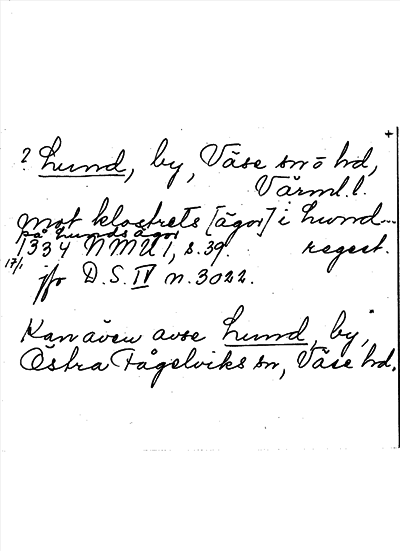 +
? Lund, by, Väse sn o hd,
Värml. l.
mot klostrets [ägor] i Lund...
på Lunds ägor
17/1 1334 NMU 1, s. 39. regest.
jfr D.S. IV n. 3022.
Kan även avse Lund, by,
Östra Fågelviks sn, Väse hd.